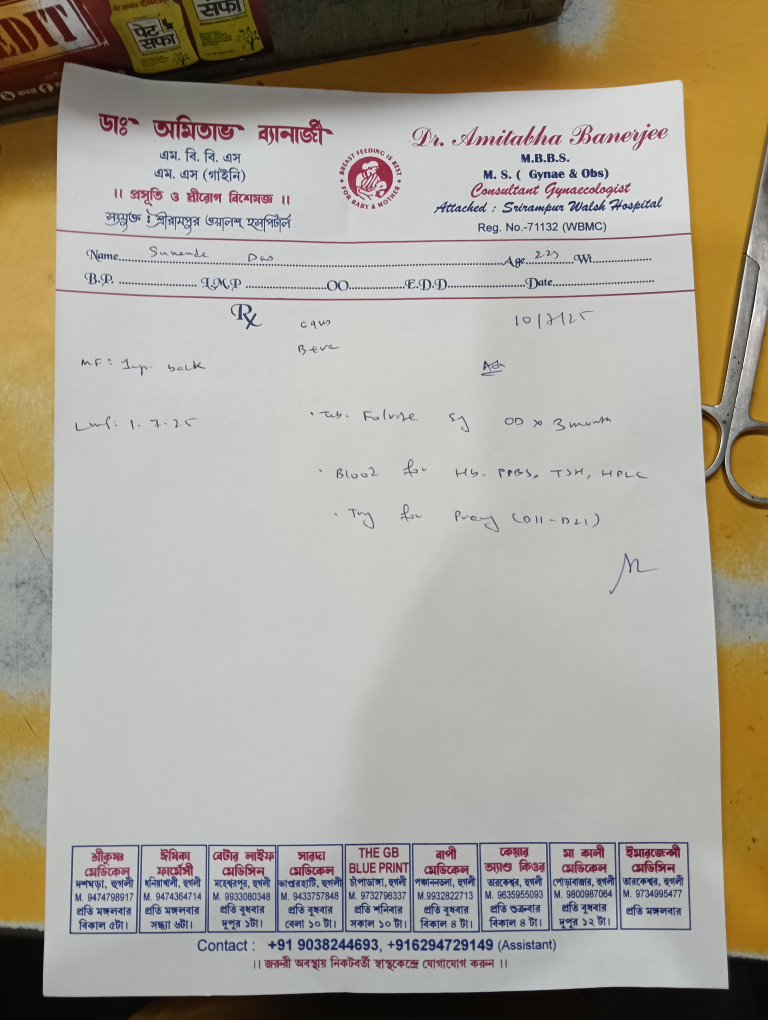 EDIT
পেট সফা
সফা
ডাঃ অমিতাভ ব্যানার্জী
এম. বি. বি. এস
এম. এস (গাইনি)
।। প্রসূতি ও স্ত্রীরোগ বিশেষজ্ঞ ।।
সংযুক্ত : শ্রীরামপুর ওয়ালশ্ হসপিটাল
BREAST FEEDING IS BEST
FOR BABY & MOTHER
Dr. Amitabha Banerjee
M.B.B.S.
M. S. ( Gynae & Obs)
Consultant Gynaecologist
Attached : Srirampur Walsh Hospital
Reg. No.-71132 (WBMC)
Name Age Wt
B.P. L.M.P OO E.D.D Date
Rx 10/7/25
MF: 1yr. back
LMP: 1.7.25 • Tab. Folvite 5g OD x 3 month
• Blood for Hb. PPBS, TSH, HPLC
• Try for Preg (D11-D21)
শ্রীকৃষ্ণ মেডিকেল
দশঘড়া, হুগলী
M. 9474798917
প্রতি মঙ্গলবার
বিকাল ৫টা।
ঈশিকা ফার্মেসী
ধনিয়াখালী, হুগলী
M. 9474364714
প্রতি মঙ্গলবার
সন্ধ্যা ৬টা।
বেটার লাইফ মেডিসিন
মহেশ্বরপুর, হুগলী
M. 9933080348
প্রতি বুধবার
দুপুর ১টা।
সারদা মেডিকেল
ভাণ্ডারহাটি, হুগলী
M. 9433757848
প্রতি বুধবার
বেলা ১০ টা।
THE GB BLUE PRINT
চাঁপাডাঙ্গা, হুগলী
M. 9732796337
প্রতি শনিবার
সকাল ১০ টা।
বাপী মেডিকেল
পঞ্চাননতলা, হুগলী
M.9932822713
প্রতি বুধবার
বিকাল ৪ টা।
কেয়ার অ্যাণ্ড কিওর
তারকেশ্বর, হুগলী
M. 9635955093
প্রতি শুক্রবার
বিকাল ৪ টা।
মা কালী মেডিকেল
পোড়াবাজার, হুগলী
M. 9800987064
প্রতি বুধবার
দুপুর ১২ টা।
ইমারজেন্সী মেডিসিন
তারকেশ্বর, হুগলী
M. 9734995477
প্রতি মঙ্গলবার
Contact : +91 9038244693, +916294729149 (Assistant)
।। জরুরী অবস্থায় নিকটবর্তী স্বাস্থকেন্দ্রে যোগাযোগ করুন ।।